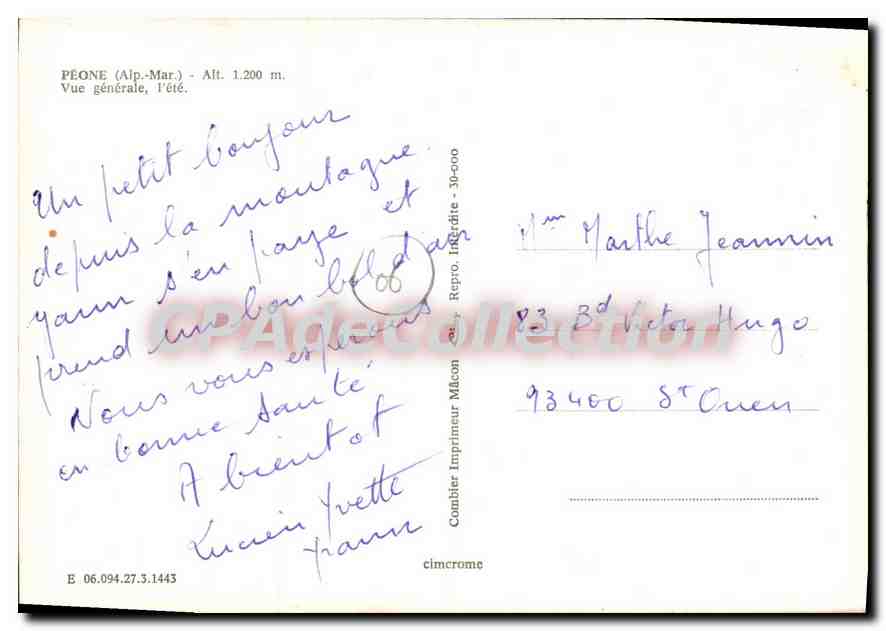 PÉONE (Alp.-Mar.) - Alt. 1.200 m.
Vue générale, l'été.
Un petit bonjour
depuis la montagne.
Yann s'en paye et
prend un bon bol d'air
Nous vous espérons
en bonne santé
A bientot
Lucien Yvette
Yann
06
E 06.094.27.3.1443
Combier Imprimeur Mâcon Repro. Interdite - 30-000
cimcrome
Mme Marthe Jeannin
83 Bd Victor Hugo
93400 St Ouen
CPAdeCollection